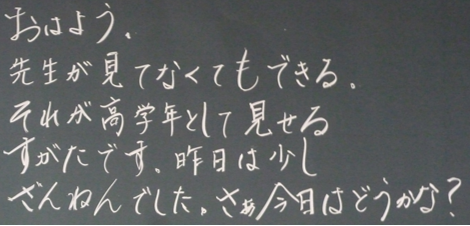 おはよう。
先生が見てなくてもできる。
それが高学年として見せる
すがたです。昨日は少し
ざんねんでした。さぁ今日はどうかな?